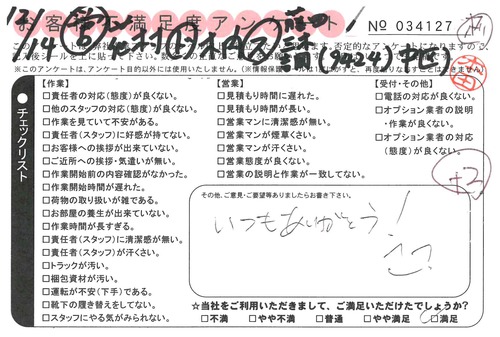 お客様満足度アンケート
No 034127
12/14
(9424)
※このアンケートは、アンケート目的以外には使用いたしません。
チェックリスト
【作業】
□責任者の対応(態度)が良くない。
□他のスタッフの対応(態度)が良くない。
□作業を見ていて不安がある。
□責任者(スタッフ)に好感が持てない。
□お客様への挨拶が出来ていない。
□ご近所への挨拶・気遣いが無い。
□作業開始前の内容確認がなかった。
□作業開始時間が遅れた。
□荷物の取り扱いが雑である。
□お部屋の養生が出来ていない。
□作業時間が長すぎる。
□責任者(スタッフ)に清潔感が無い。
□責任者(スタッフ)が汗くさい。
□トラックが汚い。
□梱包資材が汚い。
□運転が不安(下手)である。
□靴下の履き替えをしてない。
□スタッフにやる気がみられない。
【営業】
□見積もり時間に遅れた。
□見積もり時間が長い。
□営業マンに清潔感が無い。
□営業マンが煙草くさい。
□営業マンが汗くさい。
□営業態度が良くない。
□営業の説明と作業が一致してない。
【受付・その他】
□電話の対応が良くない。
□オプション業者の説明
・作業が良くない。
□オプション業者の対応
(態度)が良くない。
その他、ご意見・ご要望等ありましたらお書き下さい。
いつもありがとう!
☆当社をご利用いただきまして、ご満足いただけたでしょうか?
□不満 □やや不満 □普通 □やや満足 □満足